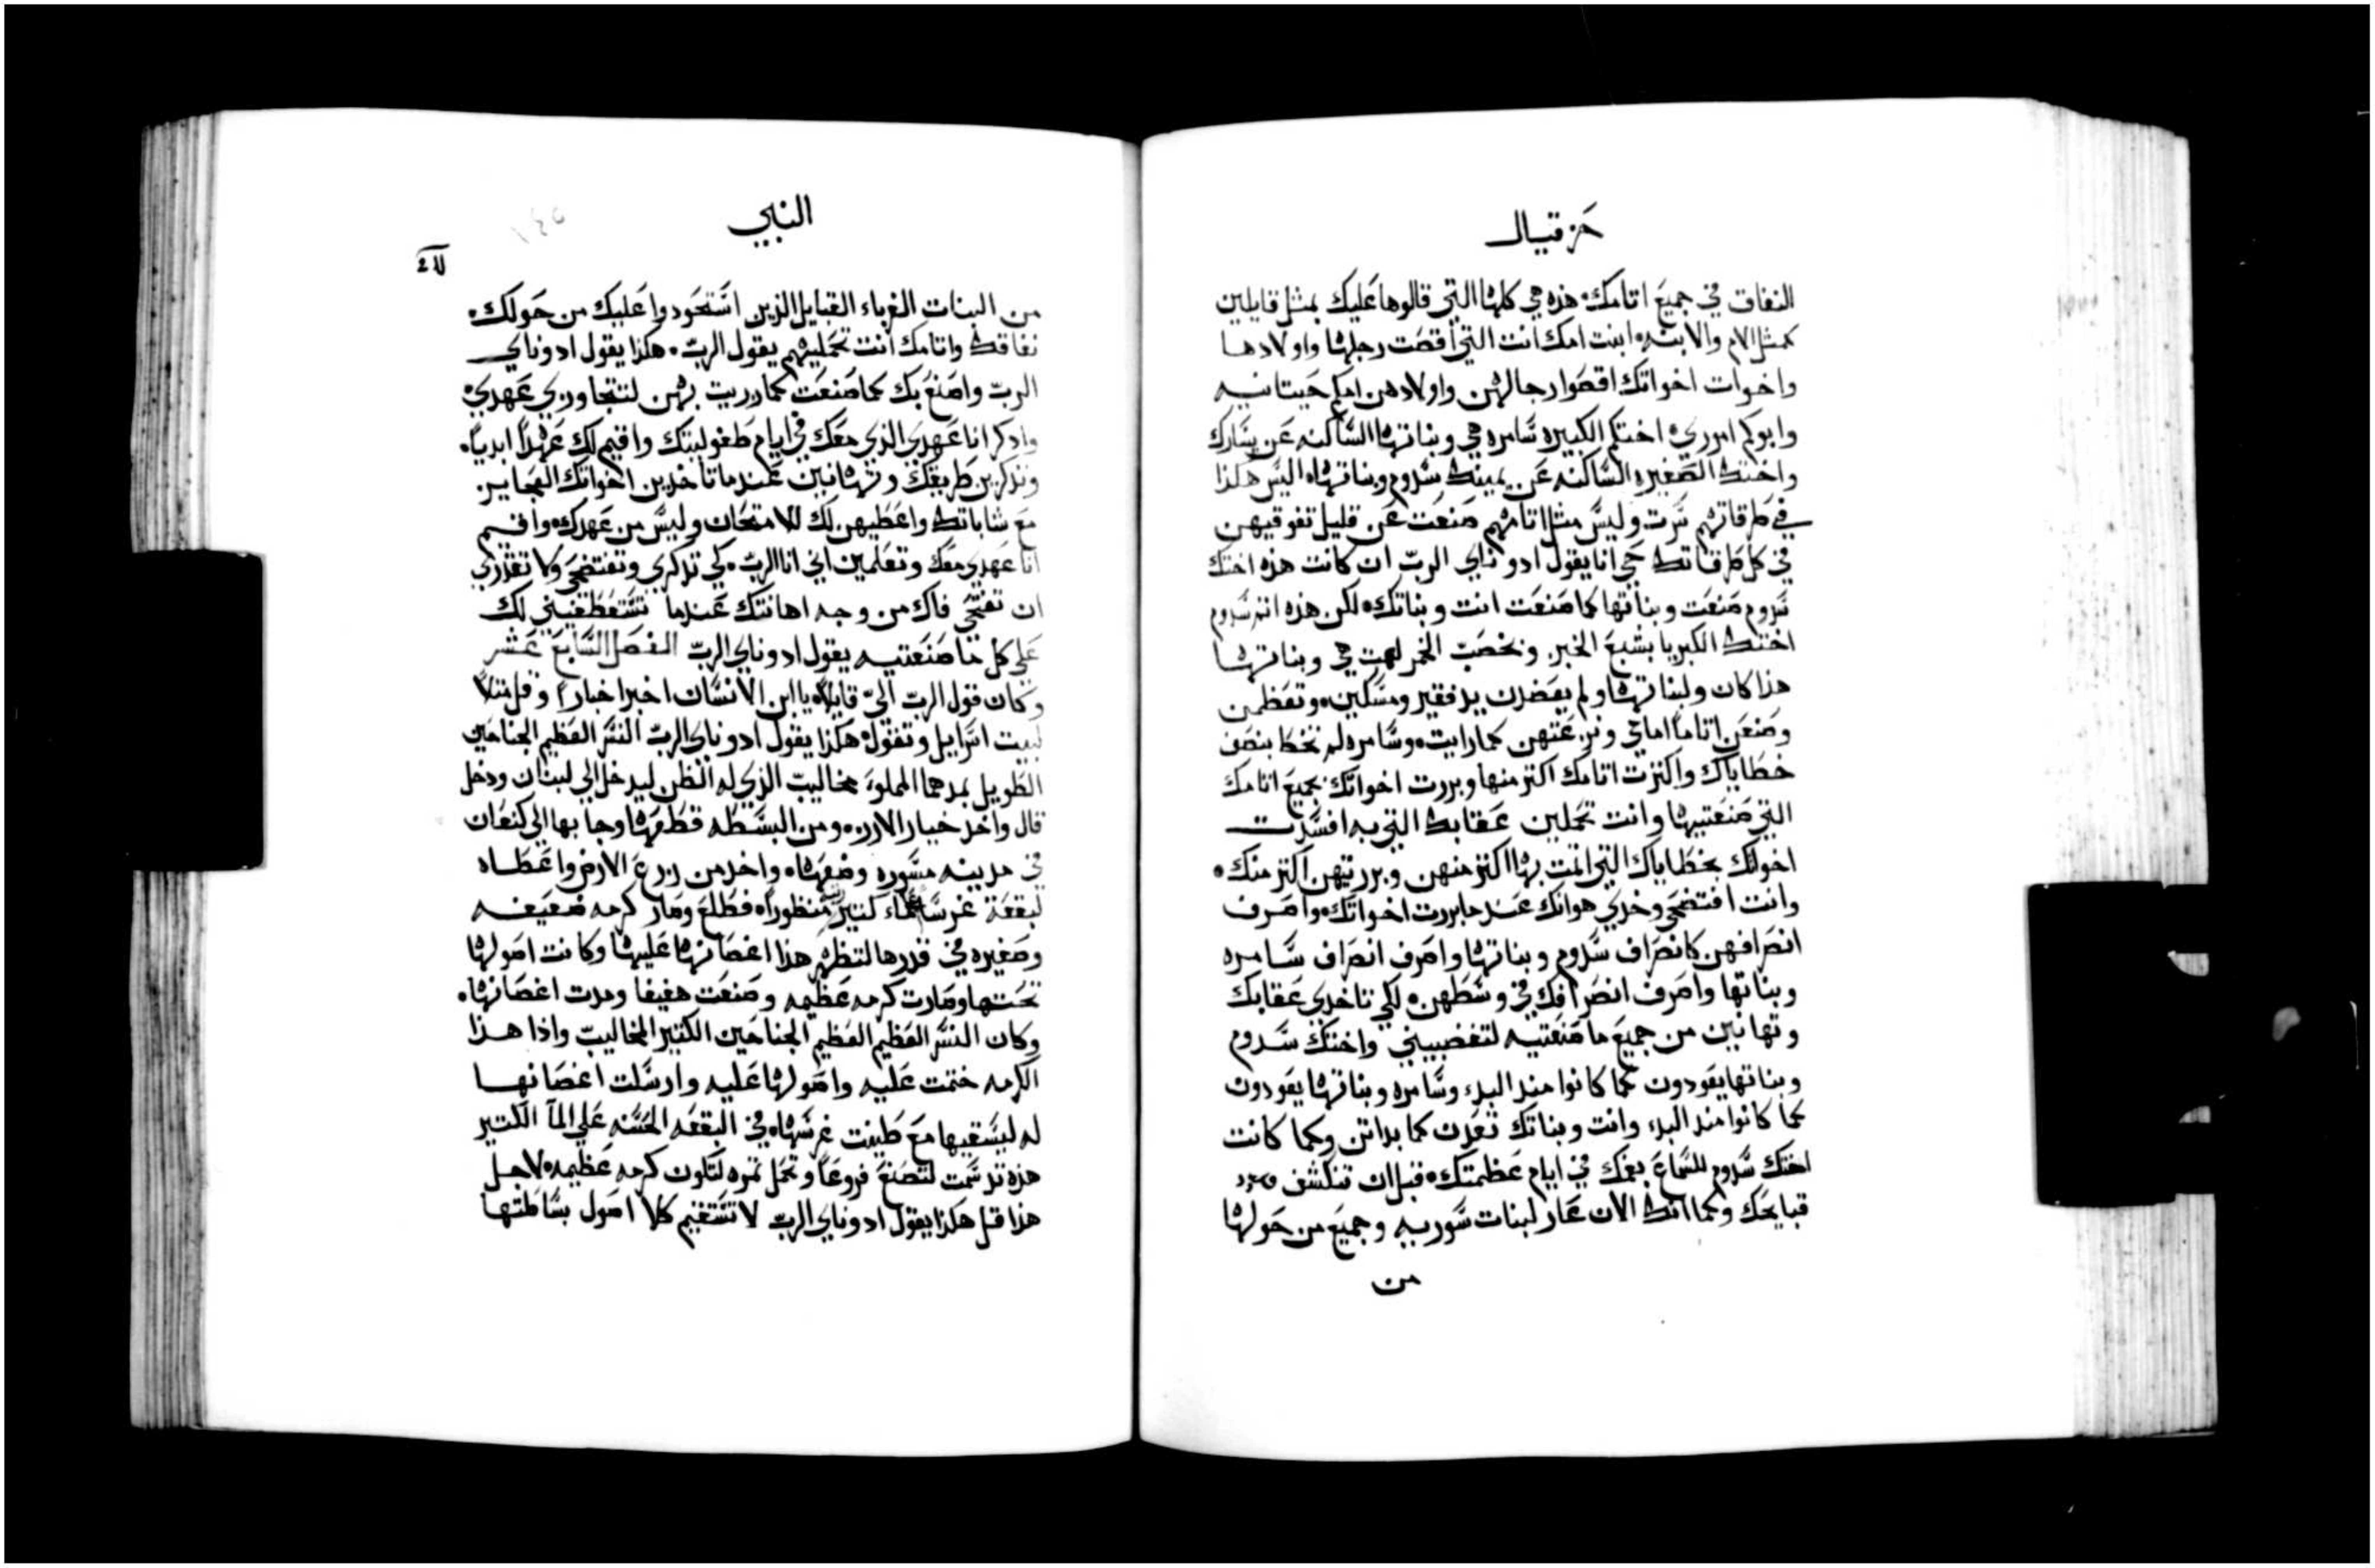 حزقيال
النفاق في جميع اتامك هذه هي كلها التي قالوها عليك بمثل قايلين
كمثل الام والابنه ابنت امك انت التي اقصت رجلها واولادها
واخوات اخواتك اقصوا رجالهن واولادهن امكم حيتانيه
وابوكم اموري اختكم الكبيره سامره هي وبناتها الساكنه عن يسارك
واختك الصغيره الساكنه عن يمينك سدوم وبناتها اليس هكذا
في طرقاتهم سرت وليس مثل اتامهم صنعت عن قليل تفوقيهن
في كل طرقاتك حي انا يقول ادوناي الرب ان كانت هذه اختك
سدوم صنعت وبناتها كما صنعت انت وبناتك لكن هذه اتم سدوم
اختك الكبريا بشبع الخبز وبخصب الخمر لهت هي وبناتها
هذا كان ولبناتها ولم يعضدن يد فقير ومسكين وتعظمن
وصنعن اتاما امامي ونزعتهن كما رايت وسامره لم تخط بنصف
خطاياك واكثرت اتامك اكثر منها وبررت اخواتك بجميع اتامك
التي صنعتيها وانت تحملين عقابك التي به افسدت
اخواتك بخطاياك التي اتمت بها اكثر منهن وبررتيهن اكثر منك
وانت افتضحي وخدي هوانك عند ما بررت اخواتك واصرف
انصرافهن كانصراف سدوم وبناتها واصرف انصراف سامره
وبناتها واصرف انصرافك في وسطهن لكي تاخدي عقابك
وتهانين من جميع ما صنعتيه لتغضبيني واختك سدوم
وبناتها يعودون كما كانوا مند البدء وسامره وبناتها يعودون
كما كانوا مند البدء وانت وبناتك تعدن كما بداتن وكما كانت
اختك سدوم للسماع بفمك في ايام عظمتك قبل ان تنكشف
قبايحك وكما انك الان عار لبنات سوريه وجميع من حولها
من
النبي
١٤٥
من البنات الغرباء القبايل الذين استحودوا عليك من حولك
نفاقك واتامك انت تحمليهم يقول الرب هكذا يقول ادوناي
الرب واصنع بك كما صنعت كما زريت بهن لتتجاوزي عهدي
وادكر انا عهدي الذي معك في ايام طفوليتك واقيم لك عهدا ابديا
وتدكرين طريقك وتهانين عندما تاخدين اخواتك العجايز
مع شاباتك واعطيهن لك للامتحان وليس من عهدك واقيم
انا عهدي معك وتعلمين اني انا الرب كي تدكري وتفتضحي ولا تقدري
ان تفتحي فاك من وجه اهانتك عندما تستعطفيني لك
على كل ما صنعتيه يقول ادوناي الرب الفصل السابع عشر
وكان قول الرب الي قايلا يا ابن الانسان اخبر اخبارا وقل مثلا
لبيت اسرايل وتقول هكذا يقول ادوناي الرب النسر العظيم الجناحين
الطويل بمدهما المملوء مخاليب الذي له الظن ليدخل الي لبنان ودخل
قال واخد خيار الارز ومن البسطه قطعها وجا بها الي كنعان
في مدينه مسوره وضعها واخد من زرع الارض واعطاه
لبقعة غرسا ماء كثير منظورا فطلع وصار كرمه ضعيفه
وصغيره في قدرها لتظهر هذا اغصانها عليها وكانت اصولها
تحتها وصارت كرمه عظيمه وصنعت هفيفا ومدت اغصانها
وكان النسر العظيم العظيم الجناحين الكثير المخاليب واذا هذا
الكرمه ختمت عليه واصولها عليه وارسلت اغصانها
له ليسقيها مع طينت غرسها في البقعه الحسنه علي المآ الكتير
هذه تدسمت لتصنع فروعا وتحمل ثمره لتكون كرمه عظيمه لاجل
هذا قل هكذا يقول ادوناي الرب لا تستقيم كلا اصول بساطتها